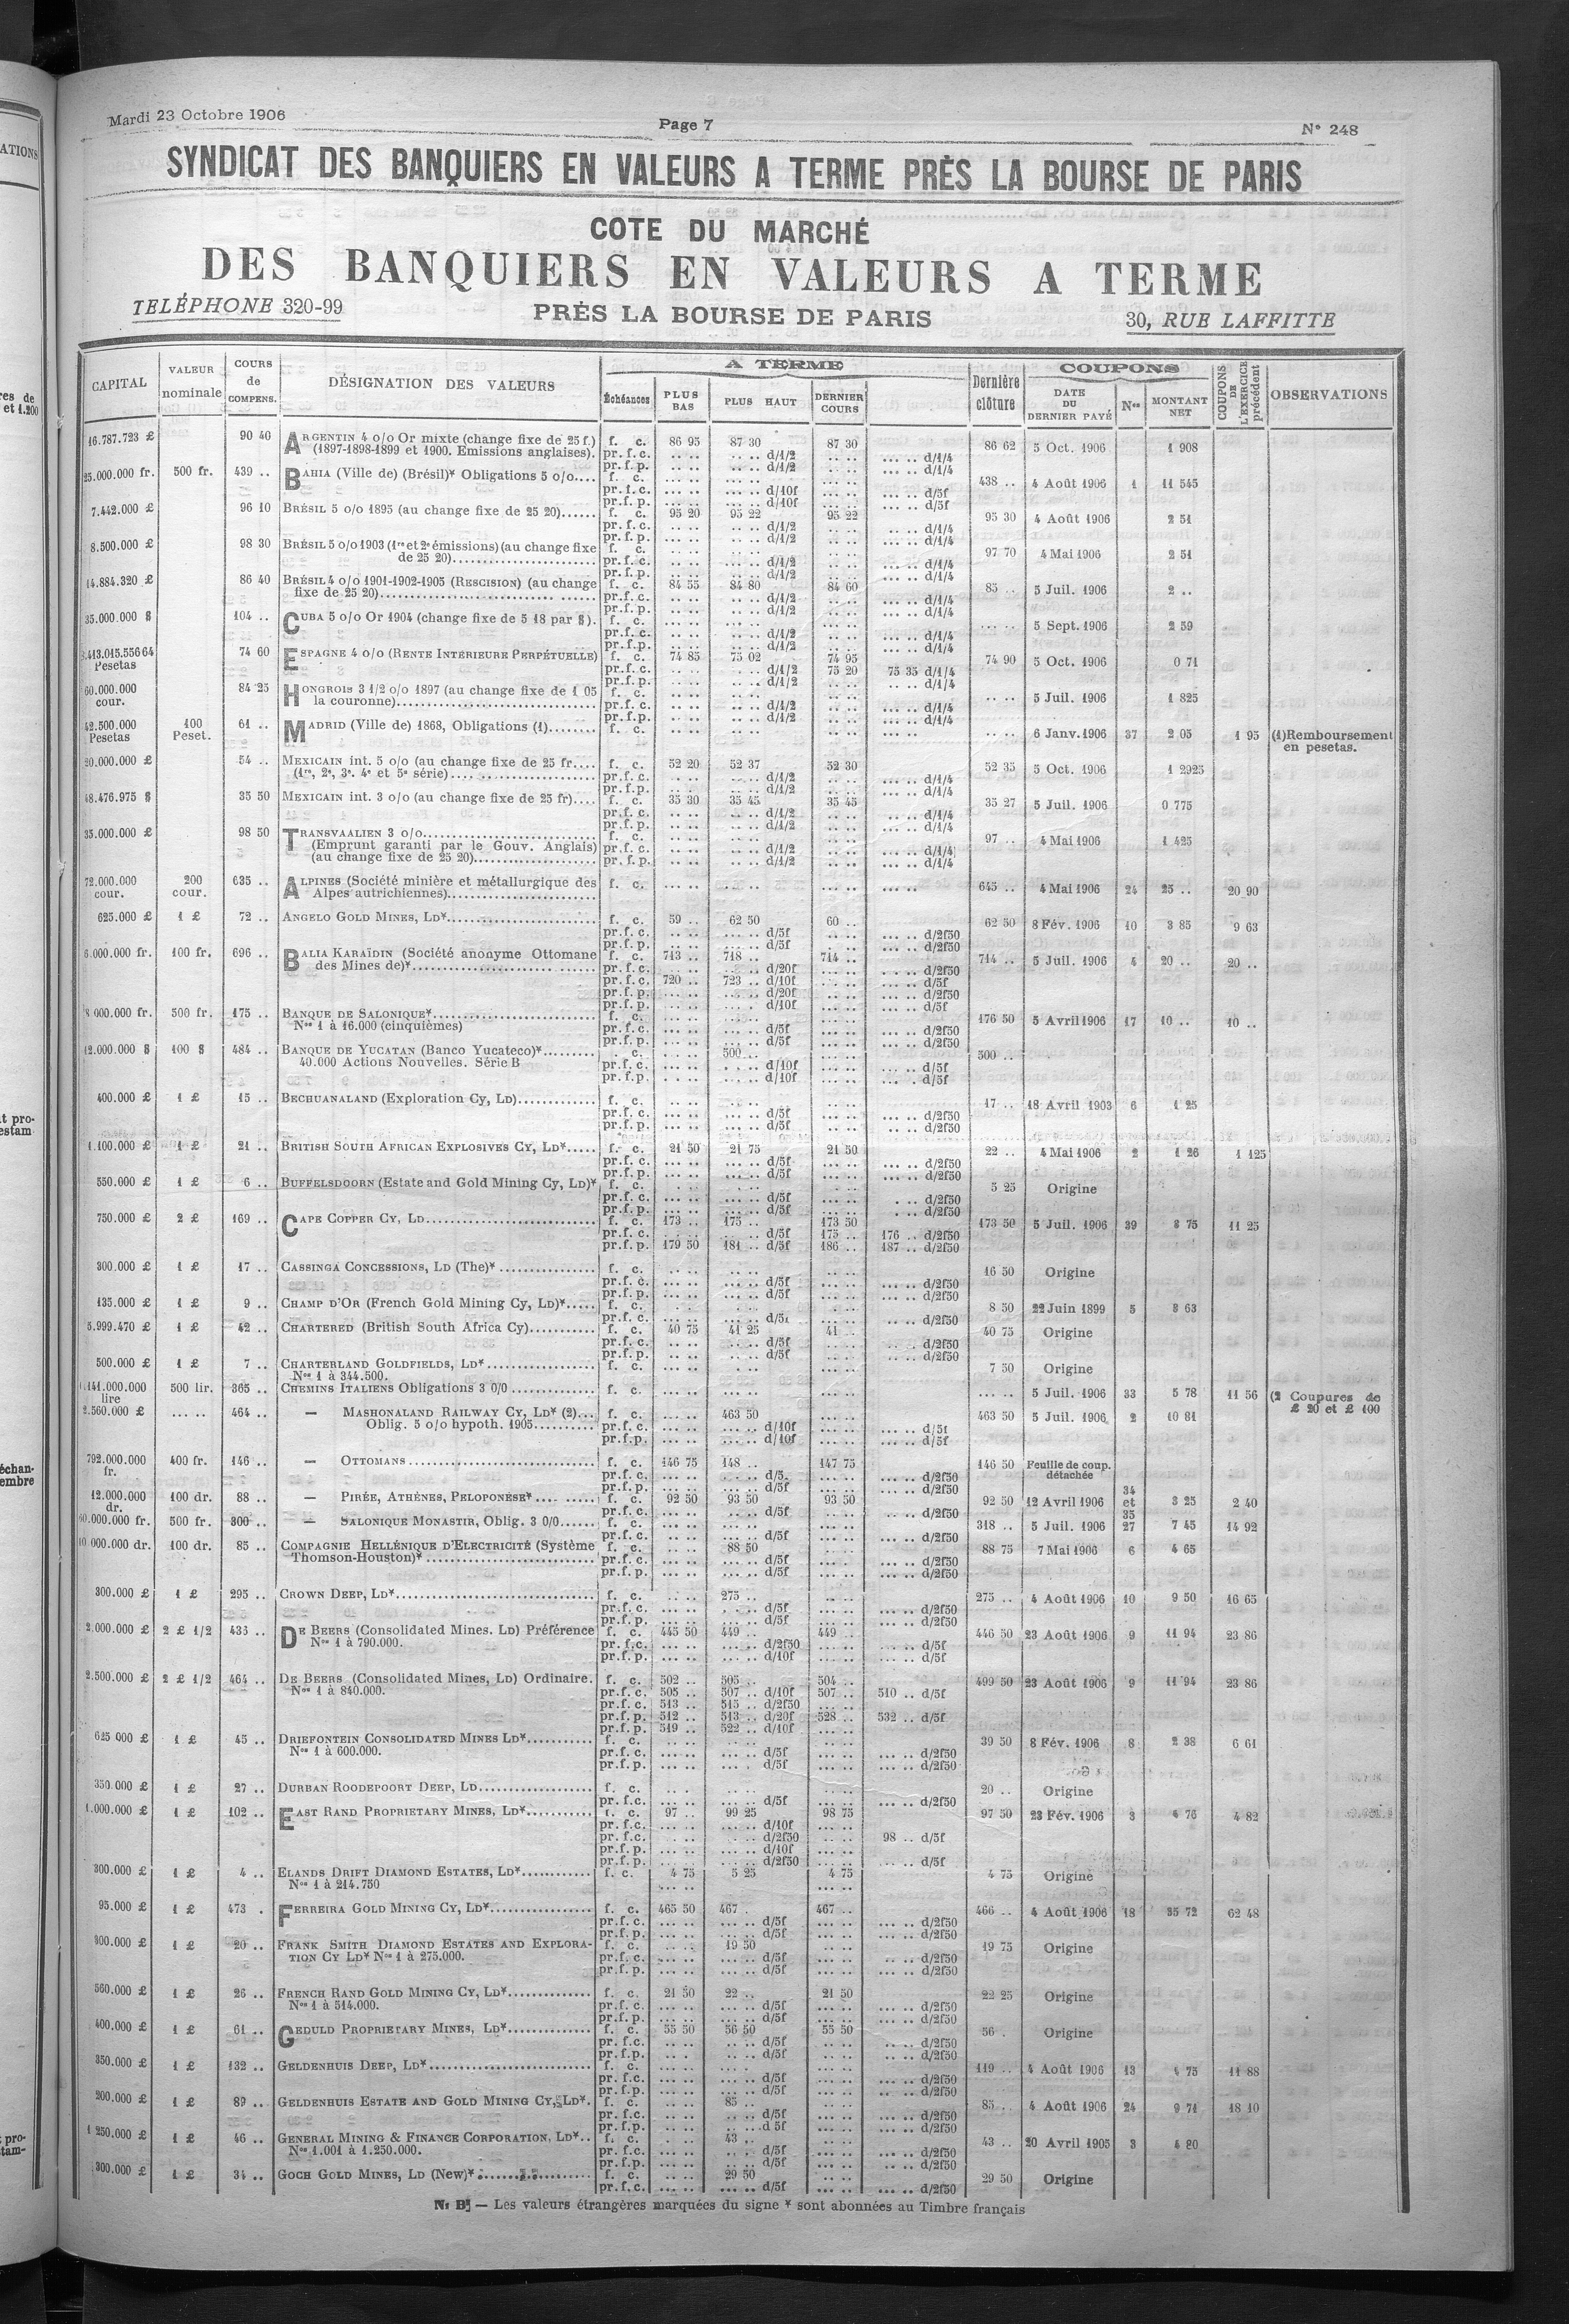 Mardi 23 Octobre 1906
Page 7
N° 248
SYNDICAT DES BANQUIERS EN VALEURS A TERME PRÈS LA BOURSE DE PARIS
COTE DU MARCHÉ
DES BANQUIERS EN VALEURS A TERME
TELÉPHONE 320-99 PRÈS LA BOURSE DE PARIS 30, RUE LAFFITTE
CAPITAL VALEUR nominale COURS de COMPENS. DÉSIGNATION DES VALEURS A TERME Échéances PLUS BAS PLUS HAUT DERNIER COURS Dernière clôture COUPONS DATE DU DERNIER PAYÉ Nos MONTANT NET COUPONS DE L'EXERCICE précédent OBSERVATIONS
16.787.723 £ 90 40 ARGENTIN 4 o/o Or mixte (change fixe de 25 f.) f. c. 86 95 87 30 87 30 86 62 5 Oct. 1906 1 908
(1897-1898-1899 et 1900. Emissions anglaises). pr. f. c. d/1/2 d/1/4
pr. f. p. d/1/2 d/1/4
25.000.000 fr. 500 fr. 439 .. BAHIA (Ville de) (Brésil)* Obligations 5 o/o.... f. c. 438 .. 4 Août 1906 1 11 545
pr. f. c. d/10f d/5f
pr. f. p. d/10f d/5f
7.442.000 £ 96 10 BRÉSIL 5 o/o 1895 (au change fixe de 25 20)...... f. c. 95 20 95 22 95 22 95 30 4 Août 1906 2 51
pr. f. c. d/1/2 d/1/4
pr. f. p. d/1/2 d/1/4
8.500.000 £ 98 30 BRÉSIL 5 o/o 1903 (1re et 2e émissions) (au change fixe f. c. 97 70 4 Mai 1906 2 51
de 25 20) pr. f. c. d/1/2 d/1/4
pr. f. p. d/1/2 d/1/4
14.884.320 £ 86 40 BRÉSIL 4 o/o 1901-1902-1905 (RESCISION) (au change f. c. 84 55 84 80 84 60 85 .. 5 Juil. 1906 2 ..
fixe de 25 20) pr. f. c. d/1/2 d/1/4
pr. f. p. d/1/2 d/1/4
35.000.000 $ 104 .. CUBA 5 o/o Or 1904 (change fixe de 5 18 par $). f. c. 5 Sept. 1906 2 59
pr. f. c. d/1/2 d/1/4
pr. f. p. d/1/2 d/1/4
413.015.556 64 Pesetas 74 60 ESPAGNE 4 o/o (RENTE INTERIEURE PERPÉTUELLE) f. c. 74 85 75 02 74 95 74 90 5 Oct. 1906 0 71
pr. f. c. d/1/2 75 20 75 35 d/1/4
pr. f. p. d/1/2 d/1/4
60.000.000 cour. 84 25 HONGROIS 3 1/2 o/o 1897 (au change fixe de 1 05 f. c. 5 Juil. 1906 1 825
la couronne) pr. f. c. d/1/2 d/1/4
pr. f. p. d/1/2 d/1/4
42.500.000 Pesetas 100 Peset. 61 .. MADRID (Ville de) 1868, Obligations (1)........ f. c. 6 Janv. 1906 37 2 05 1 95 (1) Remboursement
en pesetas.
20.000.000 £ 54 .. MEXICAIN int. 5 o/o (au change fixe de 25 fr.... f. c. 52 20 52 37 52 30 52 35 5 Oct. 1906 1 2925
(1re, 2e, 3e. 4e et 5e série) pr. f. c. d/1/2 d/1/4
pr. f. p. d/1/2 d/1/4
48.476.975 $ 35 50 MEXICAIN int. 3 o/o (au change fixe de 25 fr).... f. c. 35 30 35 45 35 45 35 27 5 Juil. 1906 0 775
pr. f. c. d/1/2 d/1/4
pr. f. p. d/1/2 d/1/4
35.000.000 £ 98 50 TRANSVAALIEN 3 o/o f. c. 97 .. 4 Mai 1906 1 425
(Emprunt garanti par le Gouv. Anglais) pr. f. c. d/1/2 d/1/4
(au change fixe de 25 20) pr. f. p. d/1/2 d/1/4
72.000.000 cour. 200 cour. 635 .. ALPINES (Société minière et métallurgique des f. c. 645 .. 4 Mai 1906 24 25 .. 20 90
Alpes autrichiennes)
625.000 £ 1 £ 72 .. ANGELO GOLD MINES, LD* f. c. 59 .. 62 50 60 .. 62 50 8 Fév. 1906 10 3 85 9 63
pr. f. c. d/5f d/2f50
pr. f. p. d/5f d/2f50
6.000.000 fr. 100 fr. 696 .. BALIA KARAÏDIN (Société anonyme Ottomane f. c. 713 .. 718 .. 714 .. 714 .. 5 Juil. 1906 4 20 .. 20 ..
des Mines de)* pr. f. c. d/20f d/2f50
pr. f. c. 720 .. 723 .. d/10f d/5f
pr. f. p. d/20f d/2f50
pr. f. p. d/10f d/5f
8 000.000 fr. 500 fr. 175 .. BANQUE DE SALONIQUE* f. c. 176 50 5 Avril 1906 17 10 .. 10 ..
Nos 1 à 16.000 (cinquièmes) pr. f. c. d/5f d/2f50
pr. f. p. d/5f d/2f50
12.000.000 $ 100 $ 484 .. BANQUE DE YUCATAN (Banco Yucateco)* . c. 500 .. 500 ..
40.000 Actions Nouvelles. Série B pr. f. c. d/10f d/5f
pr. f. p. d/10f d/5f
400.000 £ 1 £ 15 .. BECHUANALAND (Exploration Cy, LD) f. c. 17 .. 18 Avril 1903 6 1 25
pr. f. c. d/5f d/2f50
pr. f. p. d/5f d/2f50
1.100.000 £ 1 £ 21 .. BRITISH SOUTH AFRICAN EXPLOSIVES CY, LD* f. c. 21 50 21 75 21 50 22 .. 4 Mai 1906 2 1 26 1 125
pr. f. c. d/5f d/2f50
pr. f. p. d/5f d/2f50
550.000 £ 1 £ 6 .. BUFFELSDOORN (Estate and Gold Mining Cy, LD)* f. c. 5 25 Origine
pr. f. c. d/5f d/2f50
pr. f. p. d/5f d/2f50
750.000 £ 2 £ 169 .. CAPE COPPER CY, LD f. c. 173 .. 175 .. 173 50 173 50 5 Juil. 1906 39 8 75 11 25
pr. f. c. d/5f 175 .. 176 .. d/2f50
pr. f. p. 179 50 181 .. d/5f 186 .. 187 .. d/2f50
300.000 £ 1 £ 17 .. CASSINGA CONCESSIONS, LD (The)* f. c. 16 50 Origine
pr. f. c. d/5f d/2f50
pr. f. p. d/5f d/2f50
135.000 £ 1 £ 9 .. CHAMP D'OR (French Gold Mining Cy, LD)* f. c. 8 50 22 Juin 1899 5 8 63
pr. f. c. d/5f d/2f50
5.999.470 £ 1 £ 42 .. CHARTERED (British South Africa Cy) f. c. 40 75 41 25 41 .. 40 75 Origine
pr. f. c. d/5f d/2f50
pr. f. p. d/5f d/2f50
500.000 £ 1 £ 7 .. CHARTERLAND GOLDFIELDS, LD* f. c. 7 50 Origine
Nos 1 à 344.500.
141.000.000 lire 500 lir. 365 .. CHEMINS ITALIENS Obligations 3 0/0 f. c. 5 Juil. 1906 33 5 78 11 56 (2 Coupures de
£ 20 et £ 100
2.560.000 £ 464 .. — MASHONALAND RAILWAY CY, LD* (2)... f. c. 463 50 463 50 5 Juil. 1906 2 10 81
Oblig. 5 o/o hypoth. 1905 pr. f. c. d/10f d/5f
pr. f. p. d/10f d/5f
792.000.000 fr. 400 fr. 146 .. — OTTOMANS f. c. 146 75 148 .. 147 75 146 50 Feuille de coup. détachée
pr. f. c. d/5. d/2f50
pr. f. p. d/5f d/2f50
12.000.000 dr. 100 dr. 88 .. — PIRÉE, ATHÈNES, PELOPONÈSE* f. c. 92 50 93 50 93 50 92 50 12 Avril 1906 34 et 35 3 25 2 40
pr. f. c. d/5f d/2f50
60.000.000 fr. 500 fr. 300 .. — SALONIQUE MONASTIR, Oblig. 3 0/0 f. c. 318 .. 5 Juil. 1906 27 7 45 14 92
pr. f. c. d/5f d/2f50
10 000.000 dr. 100 dr. 85 .. COMPAGNIE HELLÉNIQUE D'ELECTRICITÉ (Système f. c. 88 50 88 75 7 Mai 1906 6 4 65
Thomson-Houston)* pr. f. c. d/5f d/2f50
pr. f. p. d/5f d/2f50
300.000 £ 1 £ 295 .. CROWN DEEP, LD* f. c. 275 .. 275 .. 4 Août 1906 10 9 50 16 65
pr. f. c. d/5f d/2f50
pr. f. p. d/5f d/2f50
2.000.000 £ 2 £ 1/2 433 .. DE BEERS (Consolidated Mines. LD) Préférence f. c. 445 50 449 .. 449 .. 446 50 23 Août 1906 9 11 94 23 86
Nos 1 à 790.000. pr. f. c. d/2f50 d/5f
pr. f. p. d/10f d/5f
2.500.000 £ 2 £ 1/2 464 .. DE BEERS (Consolidated Mines, LD) Ordinaire. f. c. 502 .. 505 .. 504 .. 499 50 23 Août 1906 9 11 94 23 86
Nos 1 à 840.000. pr. f. c. 505 .. 507 .. d/10f 507 .. 510 .. d/5f
pr. f. c. 513 .. 515 .. d/2f50
pr. f. p. 512 .. 513 .. d/20f 528 .. 532 .. d/5f
pr. f. p. 519 .. 522 .. d/10f
625 000 £ 1 £ 45 .. DRIEFONTEIN CONSOLIDATED MINES LD* f. c. 39 50 8 Fév. 1906 8 2 38 6 61
Nos 1 à 600.000. pr. f. c. d/5f d/2f50
pr. f. p. d/5f d/2f50
350.000 £ 1 £ 27 .. DURBAN ROODEPOORT DEEP, LD f. c. 20 .. Origine
pr. f. c. d/5f d/2f50
1.000.000 £ 1 £ 102 .. EAST RAND PROPRIETARY MINES, LD* f. c. 97 .. 99 25 98 75 97 50 23 Fév. 1906 3 4 76 4 82
pr. f. c. d/10f
pr. f. c. d/2f50 98 .. d/5f
pr. f. p. d/10f
pr. f. p. d/2f50 d/5f
300.000 £ 1 £ 4 .. ELANDS DRIFT DIAMOND ESTATES, LD* f. c. 4 75 5 25 4 75 4 75 Origine
Nos 1 à 214.750
95.000 £ 1 £ 473 . FERREIRA GOLD MINING CY, LD* f. c. 465 50 467 . 467 .. 466 .. 4 Août 1906 18 35 72 62 48
pr. f. c. d/5f d/2f50
pr. f. p. d/5f d/2f50
300.000 £ 1 £ 20 .. FRANK SMITH DIAMOND ESTATES AND EXPLORA- f. c. 19 50 19 75 Origine
TION CY LD* Nos 1 à 275.000. pr. f. c. d/5f d/2f50
pr. f. p. d/5f d/2f50
560.000 £ 1 £ 26 .. FRENCH RAND GOLD MINING CY, LD* f. c. 21 50 22 .. 21 50 22 25 Origine
Nos 1 à 514.000. pr. f. c. d/5f d/2f50
pr. f. p. d/5f d/2f50
400.000 £ 1 £ 61 .. GEDULD PROPRIETARY MINES, LD* f. c. 55 50 56 50 55 50 56 . Origine
pr. f. c. d/5f d/2f50
pr. f. p. d/5f d/2f50
350.000 £ 1 £ 132 .. GELDENHUIS DEEP, LD* f. c. 119 .. 4 Août 1906 13 4 75 11 88
pr. f. c. d/5f d/2f50
pr. f. p. d/5f d/2f50
200.000 £ 1 £ 89 .. GELDENHUIS ESTATE AND GOLD MINING CY, LD*. f. c. 85 .. 85 .. 4 Août 1906 24 9 71 18 10
pr. f. c. d/5f d/2f50
pr. f. p. d 5f d/2f50
1 250.000 £ 1 £ 46 .. GENERAL MINING & FINANCE CORPORATION, LD*.. f. c. 43 .. 43 .. 20 Avril 1905 3 4 80
Nos 1.001 à 1.250.000. pr. f. c. d/5f d/2f50
pr. f. p. d/5f d/2f50
300.000 £ 1 £ 34 .. GOCH GOLD MINES, LD (New)* f. c. 29 50 29 50 Origine
pr. f. c. d/5f d/2f50
N. B. — Les valeurs étrangères marquées du signe * sont abonnées au Timbre français